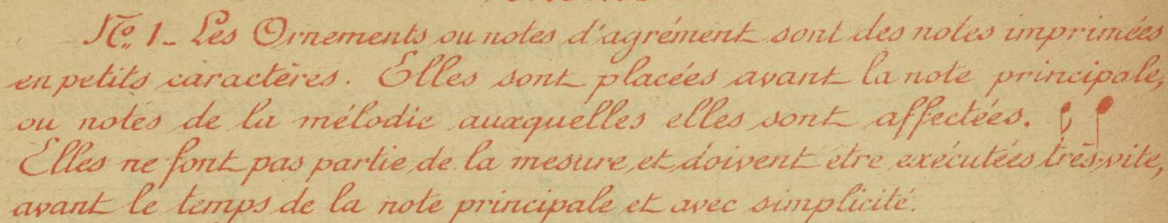 Nº 1_ Les Ornements ou notes d'agrément sont des notes imprimées
en petits caractères. Elles sont placées avant la note principale,
ou notes de la mélodie auxquelles elles sont affectées.
Elles ne font pas partie de la mesure, et doivent être exécutées très-vite,
avant le temps de la note principale et avec simplicité.